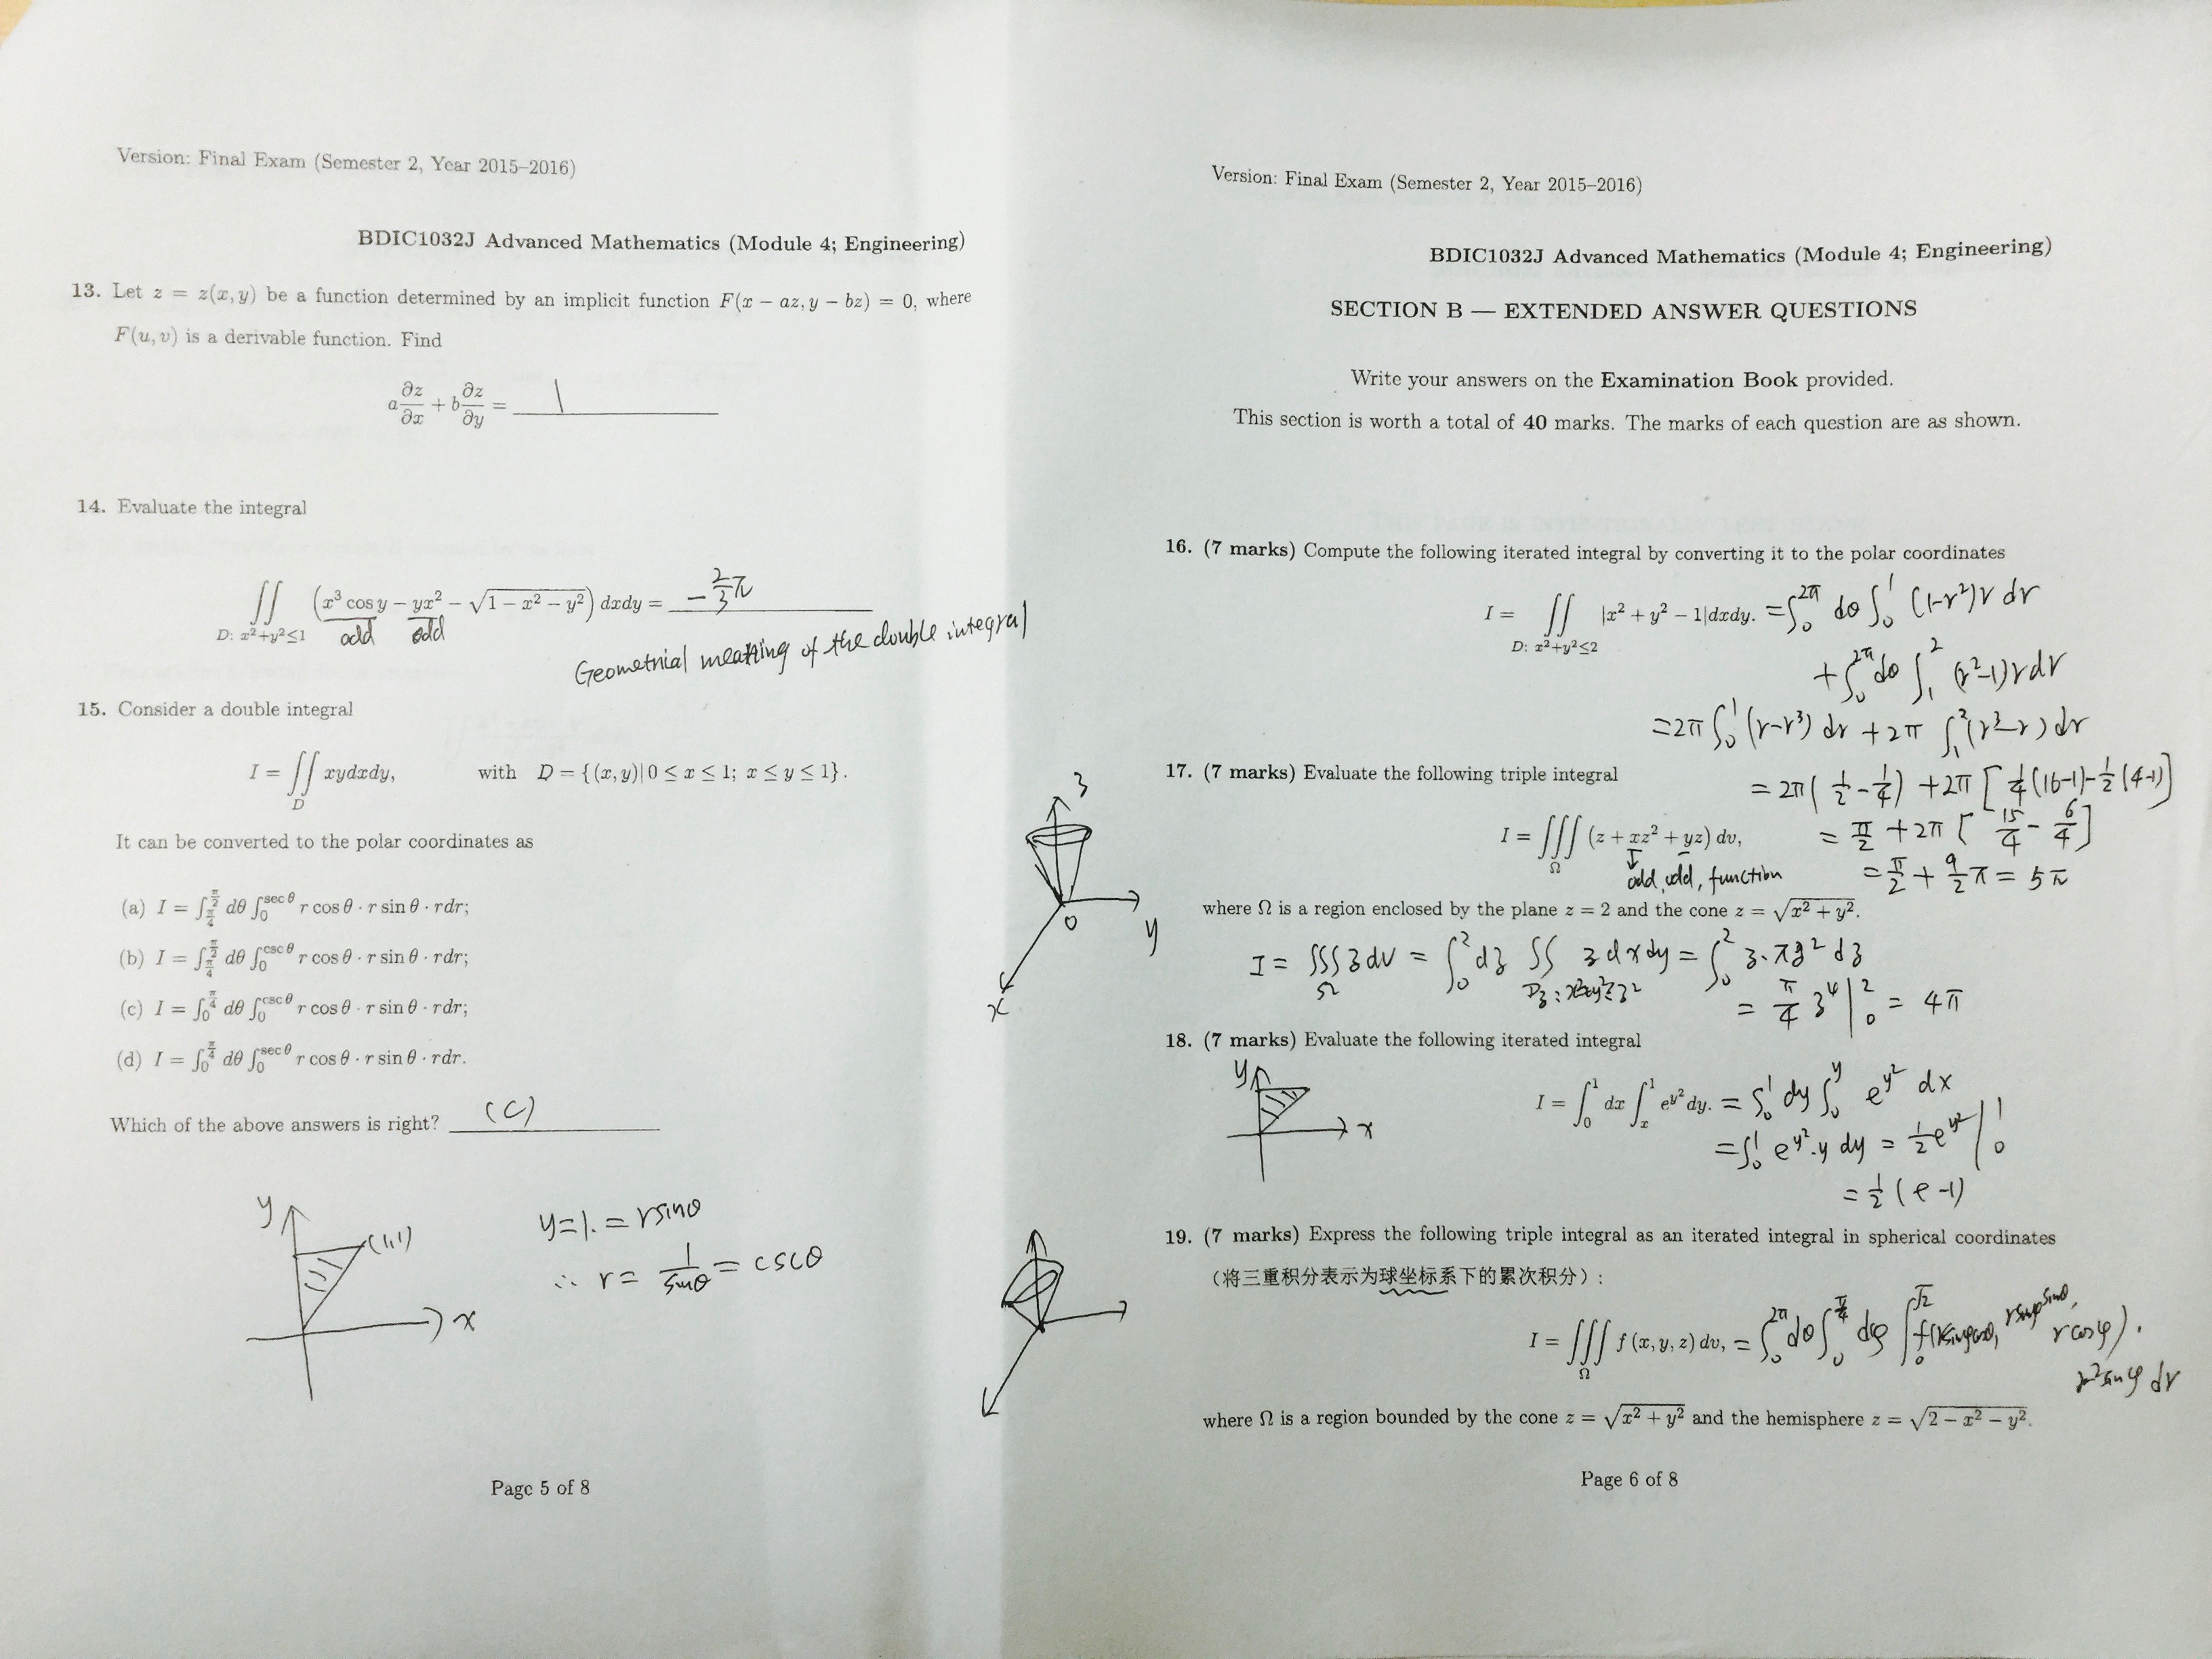 Version: Final Exam (Semester 2, Year 2015–2016)
BDIC1032J Advanced Mathematics (Module 4; Engineering)
13. Let z = z(x, y) be a function determined by an implicit function F(x − az, y − bz) = 0, where
F(u, v) is a derivable function. Find
a ∂z/∂x + b ∂z/∂y = 1
14. Evaluate the integral
∬ (x³ cos y − yx² − √(1 − x² − y²)) dxdy = −2/3 π
D: x²+y²≤1 odd odd
Geometrial meaning of the double integral
15. Consider a double integral
I = ∬_D xydxdy, with D = {(x, y)| 0 ≤ x ≤ 1; x ≤ y ≤ 1}.
It can be converted to the polar coordinates as
(a) I = ∫_{π/4}^{π/2} dθ ∫_0^{sec θ} r cos θ · r sin θ · rdr;
(b) I = ∫_{π/4}^{π/2} dθ ∫_0^{csc θ} r cos θ · r sin θ · rdr;
(c) I = ∫_0^{π/4} dθ ∫_0^{csc θ} r cos θ · r sin θ · rdr;
(d) I = ∫_0^{π/4} dθ ∫_0^{sec θ} r cos θ · r sin θ · rdr.
Which of the above answers is right? (C)
y
(1,1)
x
y=1. = rsinθ
∴ r = 1/sinθ = cscθ
Page 5 of 8
Version: Final Exam (Semester 2, Year 2015–2016)
BDIC1032J Advanced Mathematics (Module 4; Engineering)
SECTION B — EXTENDED ANSWER QUESTIONS
Write your answers on the Examination Book provided.
This section is worth a total of 40 marks. The marks of each question are as shown.
16. (7 marks) Compute the following iterated integral by converting it to the polar coordinates
I = ∬ |x² + y² − 1|dxdy. = ∫_0^{2π} dθ ∫_0^1 (1−r²)r dr
D: x²+y²≤2
+ ∫_0^{2π} dθ ∫_1^2 (r²−1)rdr
= 2π ∫_0^1 (r−r³) dr + 2π ∫_1^2 (r³−r) dr
= 2π(1/2 − 1/4) + 2π [1/4(16−1) − 1/2(4−1)]
= π/2 + 2π [15/4 − 6/4]
= π/2 + 9/2 π = 5π
17. (7 marks) Evaluate the following triple integral
I = ∭_Ω (z + xz² + yz) dv,
odd, odd, function
where Ω is a region enclosed by the plane z = 2 and the cone z = √(x² + y²).
z
0
y
x
I = ∭_Ω z dv = ∫_0^2 dz ∬ z dxdy = ∫_0^2 z·πz² dz
D_z: x²+y²≤z²
= π/4 z⁴ |_0^2 = 4π
18. (7 marks) Evaluate the following iterated integral
y
x
I = ∫_0^1 dx ∫_x^1 e^{y²} dy. = ∫_0^1 dy ∫_0^y e^{y²} dx
= ∫_0^1 e^{y²}·y dy = 1/2 e^{y²} |_0^1
= 1/2 (e−1)
19. (7 marks) Express the following triple integral as an iterated integral in spherical coordinates
（将三重积分表示为球坐标系下的累次积分）:
I = ∭_Ω f(x, y, z) dv, = ∫_0^{2π} dθ ∫_0^{π/4} dφ ∫_0^{√2} f(rsinφcosθ, rsinφsinθ, rcosφ).
r²sinφ dr
where Ω is a region bounded by the cone z = √(x² + y²) and the hemisphere z = √(2 − x² − y²).
Page 6 of 8